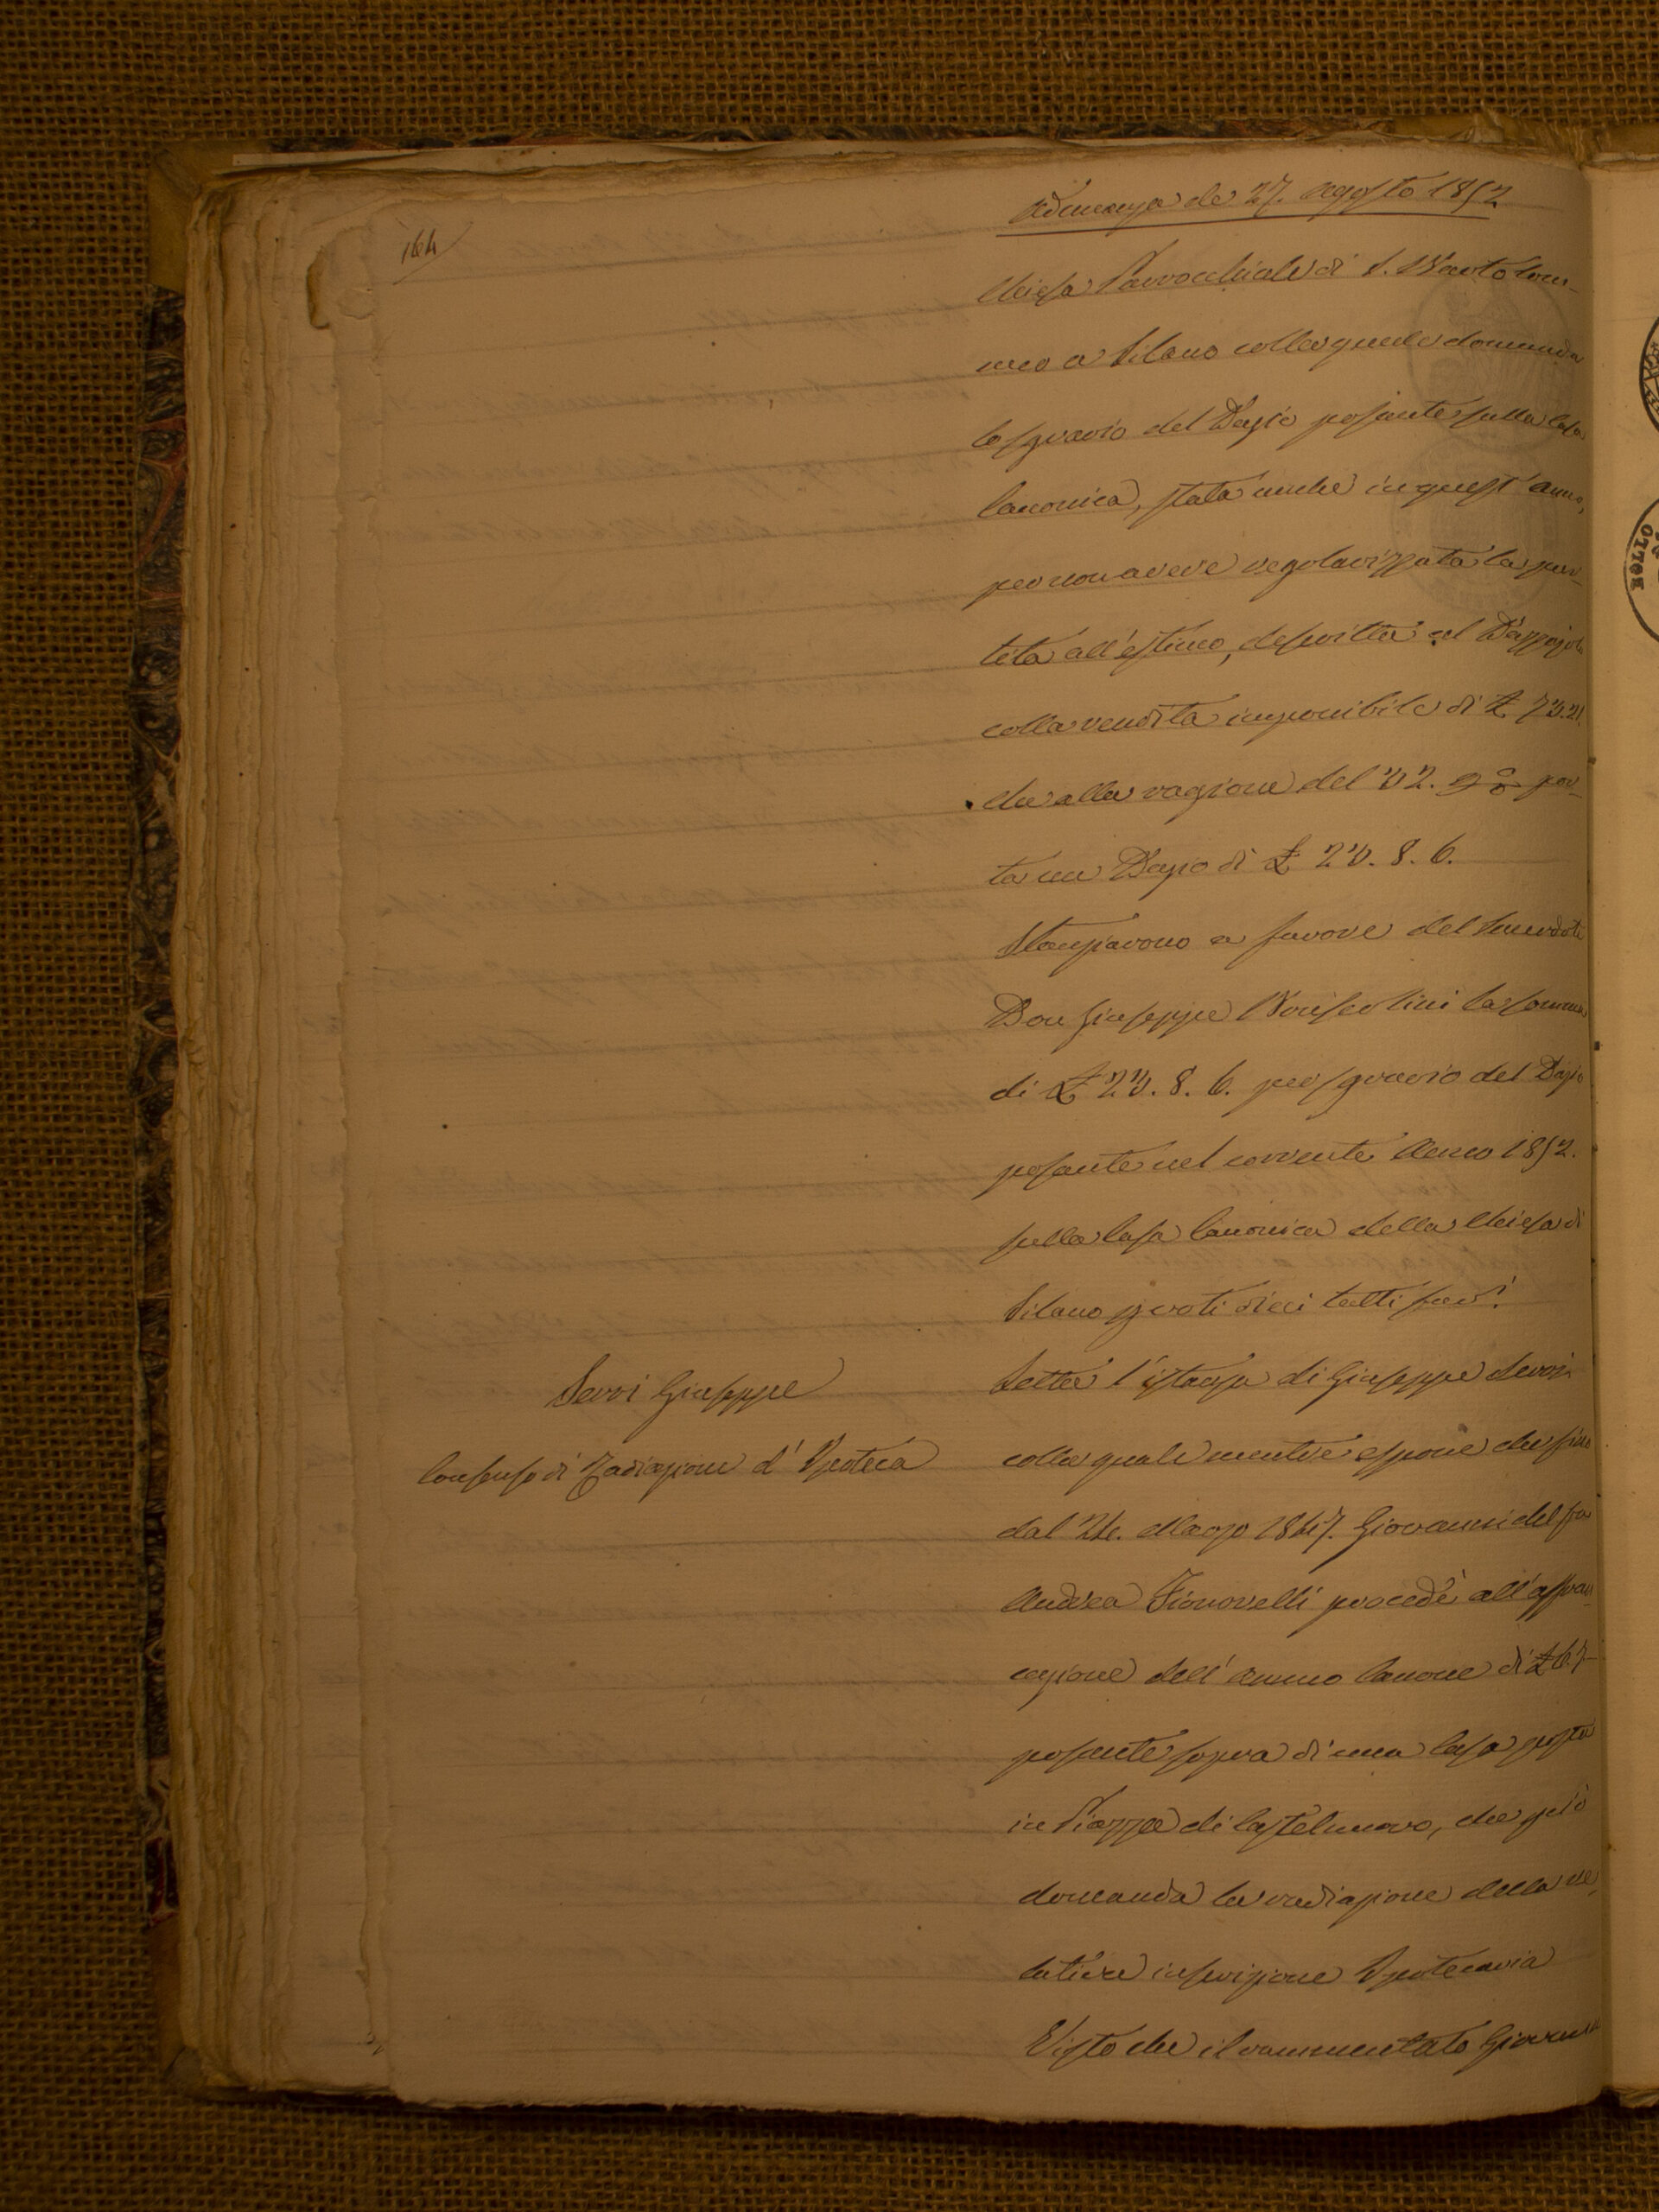 Adunanza de 27. Agosto 1852
164
Chiesa Parrocchiale di S. Bartolom-
meo a Silano colla quale domanda
lo sgravio del Dazio posante sulla Casa
Canonica, stata anche in quest'anno,
per non avere regolarizzata la par-
tita all'estimo, descritta al Dazzajolo
colla rendita imponibile di £ 73.21.
che alla ragione del 32. p % por-
ta un Dazio di £ 23. 8. 6.
Stanziarono a favore del Sacerdote
Don Giuseppe la somma
di £ 23. 8. 6. per sgravio del Dazio
posante nel corrente Anno 1852.
sulla Casa Canonica della Chiesa di
Silano p voti dieci tutti favi.
Servi Giuseppe
Consenso di Radiazione d'Ipoteca
Letta l'istanza di Giuseppe Servi
colla quale mentre espone che fino
dal 24. Marzo 1847. Giovanni del fu
Andrea Fionovelli procedè all'affran-
cazione dell'annuo Canone di £
posante sopra di una Casa posta
in Piazza di Castelnuovo, che però
domanda la radiazione della re-
lativa inscrizione Ipotecaria
Visto che il rammentato Giovanni
BOLLO